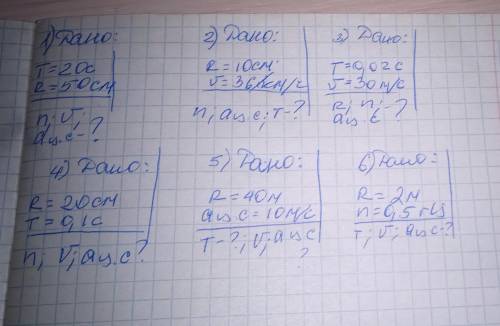 1) Дано:
T = 20с
R = 50см
n; v;
aц.с - ?
2) Дано:
R = 10см
v = 36км/ч
n; aц.с; T - ?
3) Дано:
T = 0,02с
v = 30м/с
R; n; - ?
aц.с
4) Дано:
R = 20см
T = 0,1с
n; v; aц.с ?
5) Дано:
R = 40м
aц.с = 10м/с
T - ?; v; aц.с
?
6) Дано:
R = 2м
n = 0,5 гц
T; v; aц.с ?